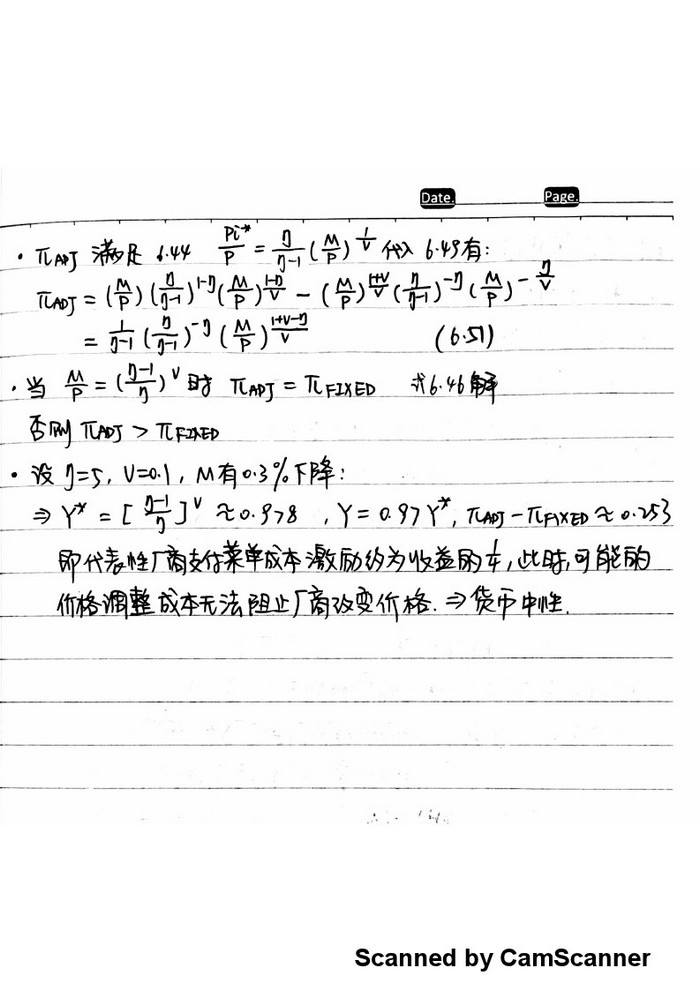 Date. Page.
· π_ADJ 满足 6.44 Pi*/P = η/(η-1) (M/P)^(1/V) 代入 6.49有:
π_ADJ = (M/P) (η/(η-1))^(1-η) (M/P)^((1-η)/V) - (M/P)^((1+V)/V) (η/(η-1))^(-η) (M/P)^(-η/V)
= 1/(η-1) (η/(η-1))^(-η) (M/P)^((1+V-η)/V) (6.51)
· 当 M/P = ((η-1)/η)^V 时 π_ADJ = π_FIXED 式6.46解
否则 π_ADJ > π_FIXED
· 设 η=5, V=0.1, M有0.3%下降:
⇒ Y* = [(η-1)/η]^V ≈0.978 , Y = 0.97Y*, π_ADJ - π_FIXED ≈ 0.253
即代表性厂商支付菜单成本激励约为收益的, 此时,可能的
价格调整成本无法阻止厂商改变价格. ⇒ 货币中性.
Scanned by CamScanner